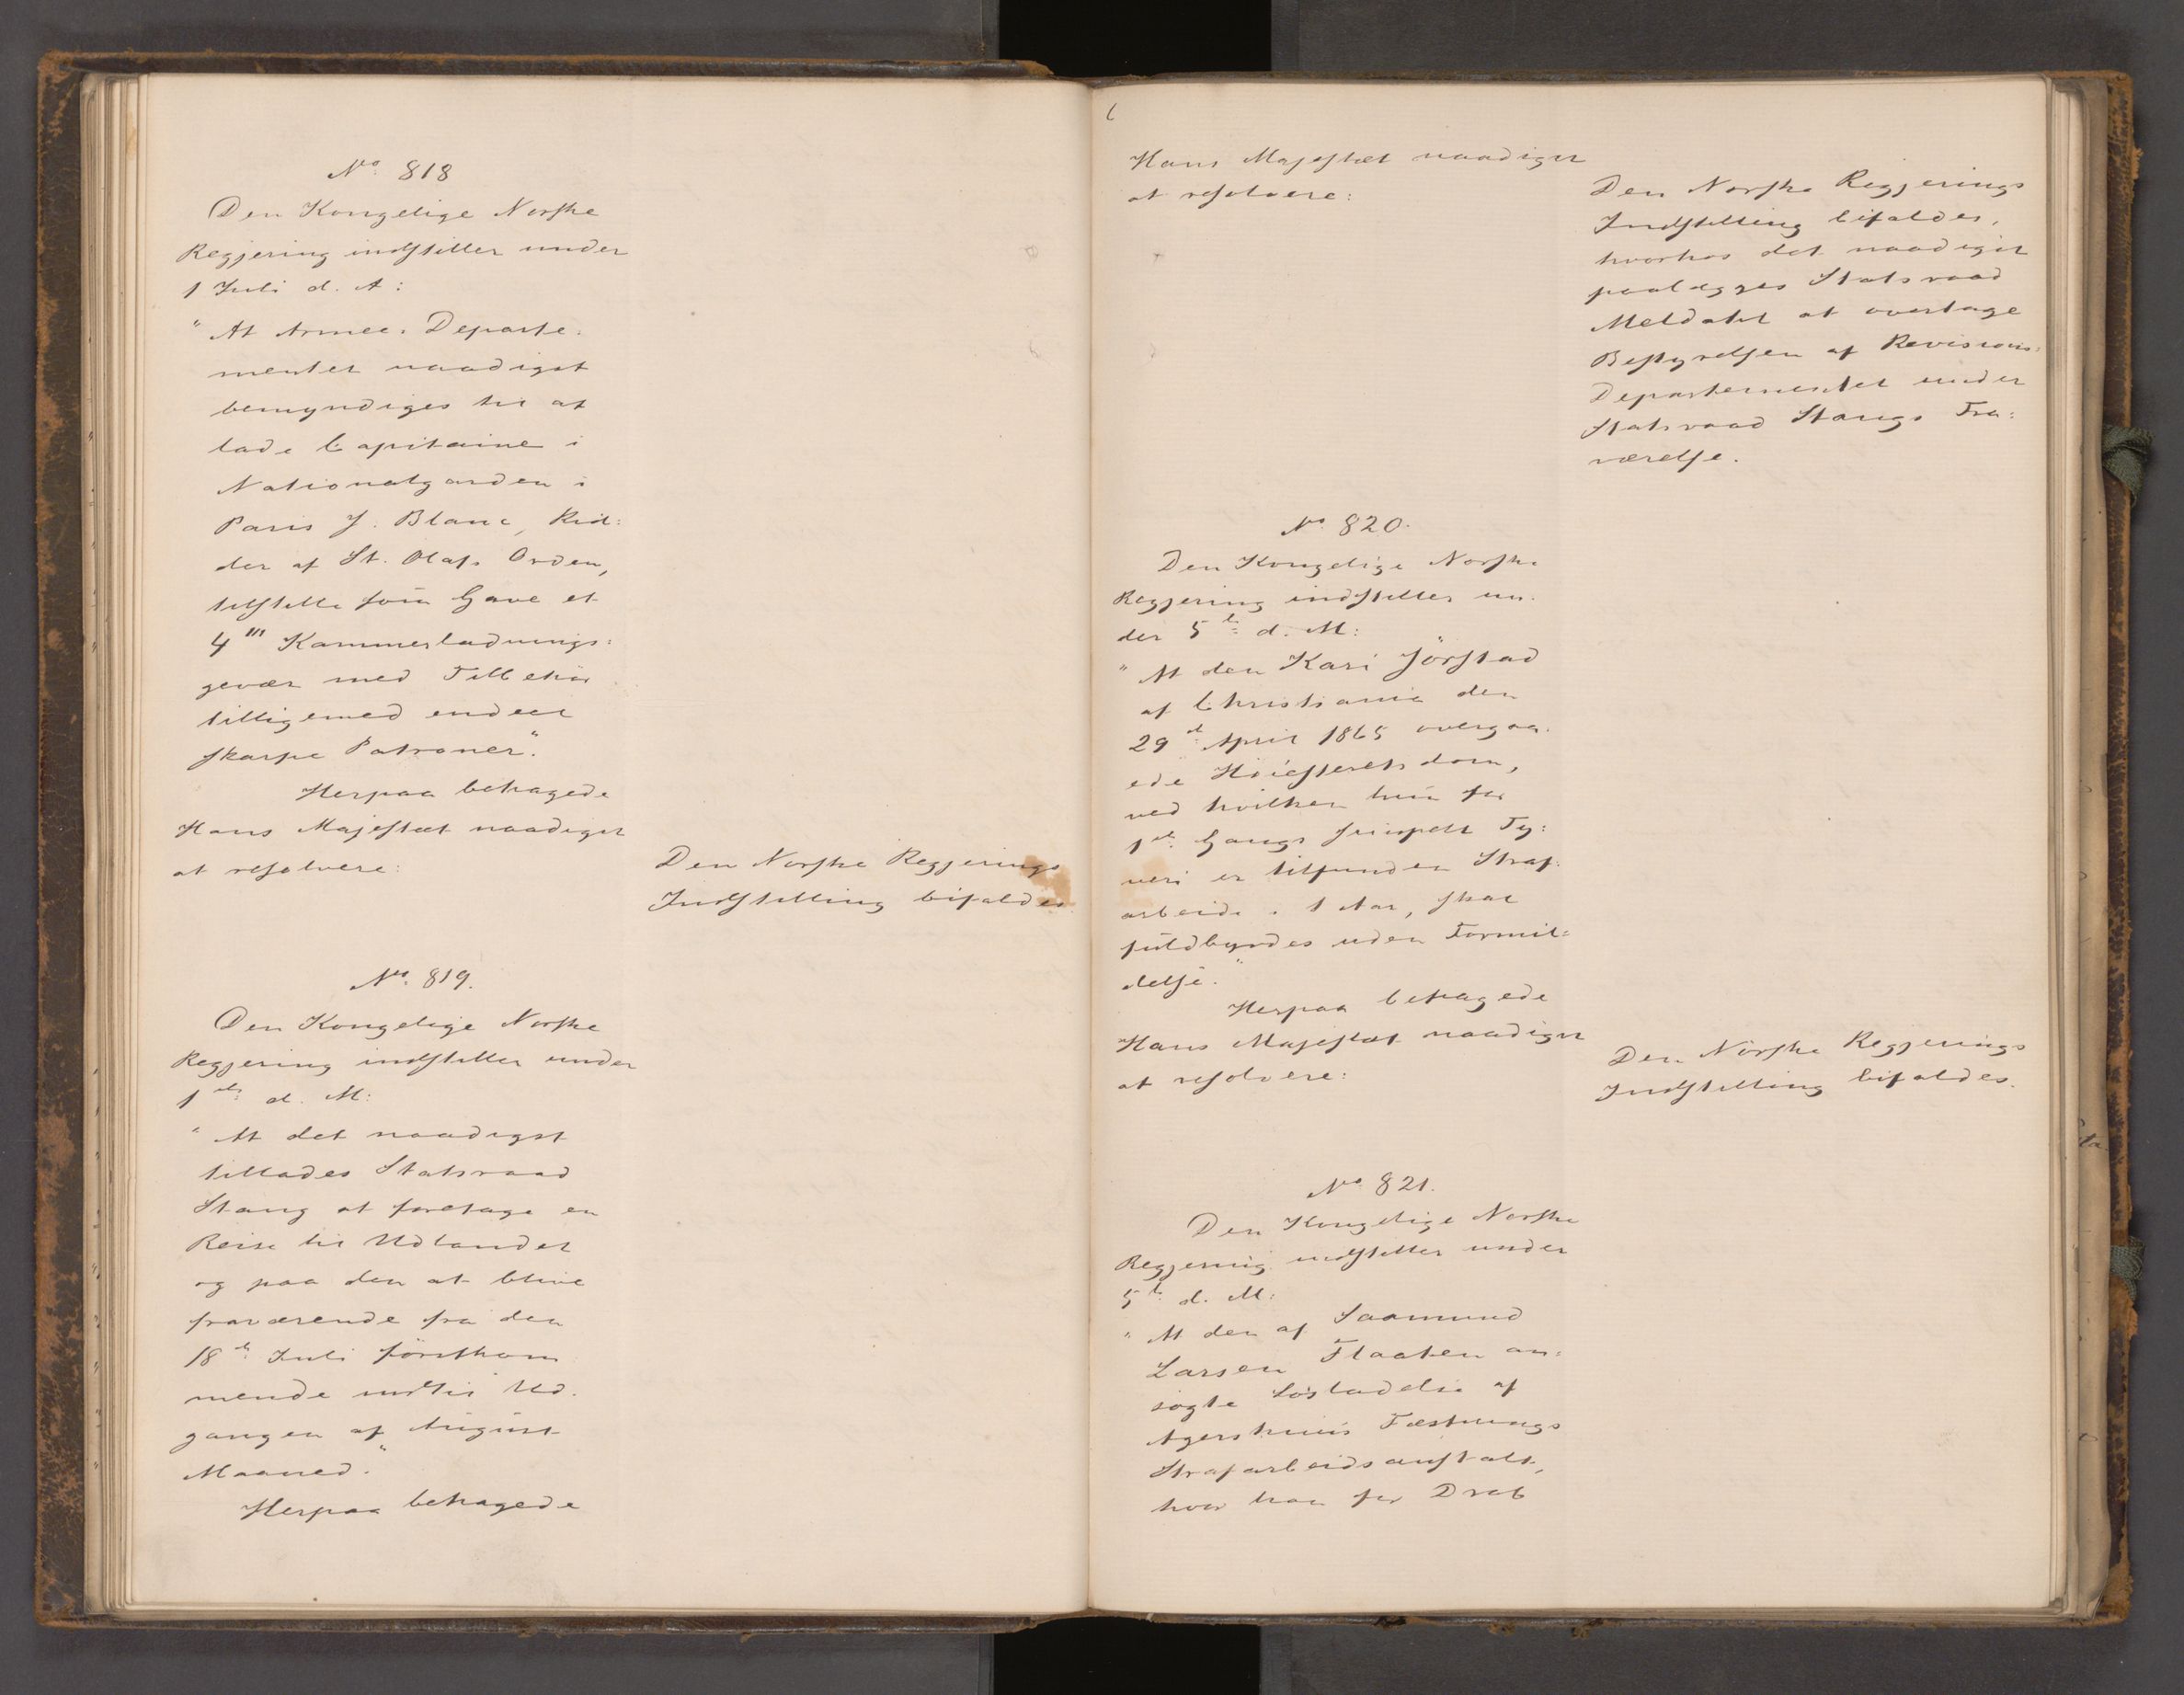 No. 818
Den Kongelige Norske
Regjering indstiller under
1 Juli d. A:
"At Armee-Departe-
mentet naadigst
bemyndiges til at
lade Capitaine i
Nationalgarden i
Paris J. Blanc, Rid:
der af St. Olafs Orden,
tilstille som Gave et
4''' Kammerladnings:
gevær med Tilbehør
tilligemed endeel
skarpe Patroner".
Herpaa behagede
Hans Majestæt naadigst
at resolvere:
Den Norske Regjerings
Indstilling bifaldes
No. 819.
Den Kongelige Norske
Regjering indstiller under
1ste d. M:
"At det naadigst
tillades Statsraad
Stang at foretage en
Reise til Udlandet
og paa den at blive
fraværende fra den
18de Juli førstkom
mende indtil Ud-
gangen af August
Maaned."
Herpaa behagede
Hans Majestæt naadigst
at resolvere:
Den Norske Regjerings
Indstilling bifaldes,
hvorhos det naadigst
paalægges Statsraad
Meldahl at overtage
Bestyrelsen af Revisions-
Departementet under
Statsraad Stangs Fra:
værelse.
No. 820.
Den Kongelige Norske
Regjering indstiller un-
der 5te d. M:
"At den Kari Jörstad
af Christiania den
29de April 1865 overgaa-
ede Høiesteretsdom,
ved hvilken hun for
1ste Gangs simpelt Ty:
veri er tilfunden Straf-
arbeide i 1 Aar, skal
fuldbyrdes uden Formil:
delse."
Herpaa behagede
Hans Majestæt naadigst
at resolvere:
Den Norske Regjerings
Indstilling bifaldes.
No. 821.
Den Kongelige Norske
Regjering indstiller under
5te d. M:
"At den af Saamund
Larsen Flaaten an:
søgte Løsladelse af
Agershuus Fæstnings
Strafarbeidsanstalt,
hvor han for Drab